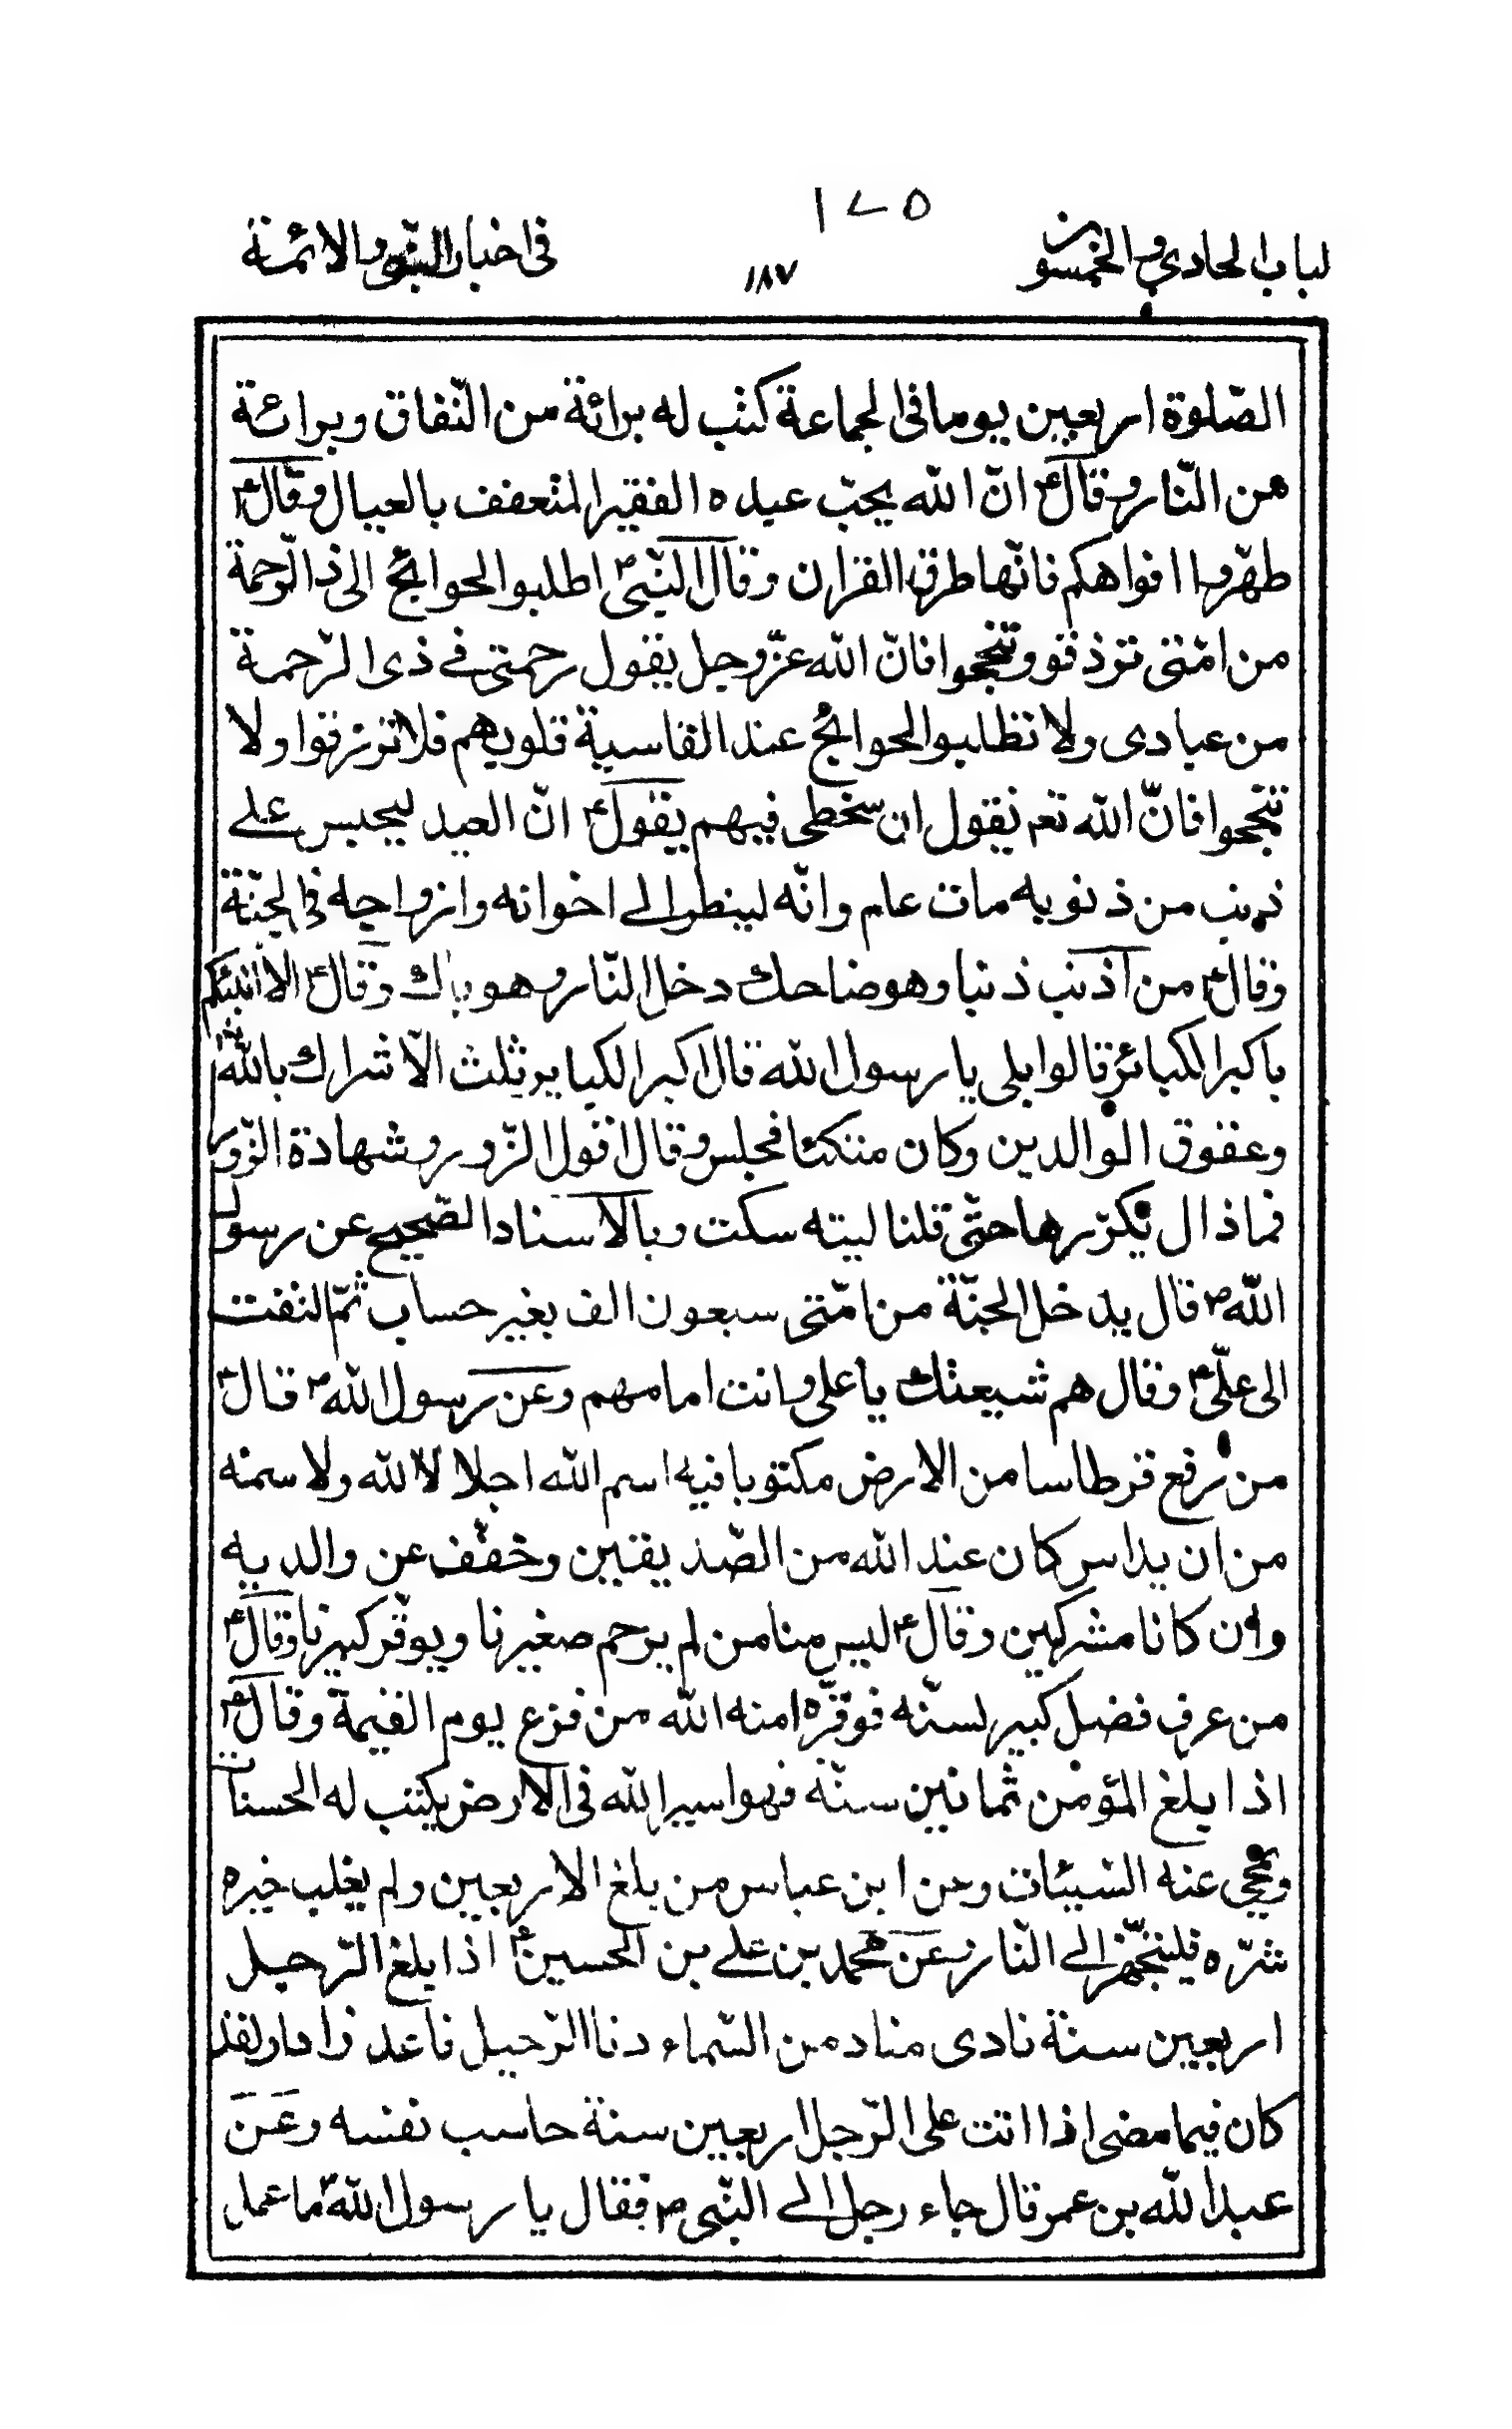 ١٧٥
لباب الحادي والخمسون
١٨٧
فى اخبار النبى والائمة
الصّلوة اربعين يوما فى الجماعة كتب له برائة من النّفاق وبرائة
من النّار وقالؑ انّ الله يحبّ عبده الفقير المتعفف بالعيال وقالؑ
طهّروا افواهكم فانّها طرق القران وقال النّبىؐ اطلبوا الحوائج الى ذى الرّحمة
من امّتى ترذقو وتنجحوا فانّ الله عزّوجل يقول رحمتى فى ذى الرّحمة
من عبادى ولا تطلبوا الحوائج عند القاسية قلوبهم فلا ترزقوا ولا
تنجحوا فانّ الله تعم يقول ان سخطى فيهم يقولؑ انّ العبد ليحبس على
ذنب من ذنوبه مات عام وانّه لينظر الى اخوانه وازواجه فى الجنّة
وقالؑ من اذنب ذنبا وهو ضاحك دخل النّار وهو باك وقالؑ الا انبئكم
باكبر الكبائر قالوا بلى يا رسول الله قال اكبر الكبا ير ثلث الاشراك بالله
وعقوق الوالدين وكان متكئا فجلس وقال اقول الزّور وشهادة الزّور
فماذال يكرّرها حتّى قلنا ليته سكت وبالاسنادا الصّحيح عن رسول
اللهؐ قال يدخل الجنّة من امّتى سبعون الف بغير حساب ثمّ التفت
الى علّىؑ وقال هم شيعتك يا على وانت امامهم وعن رسول اللهؐ قال
من رفع قرطاسا من الارض مكتوبا فيه اسم الله اجلالا لله ولاسمه
من ان يداس كان عند الله من الصّديقين وخفّف عن والديه
وان كانا مشركين وقالؑ ليس منا من لم يرحم صغيرنا ويوقّر كبيرنا وقالؑ
من عرف فضل كبير لسنّه فوقّره امنه الله من فزع يوم القيمة وقالؑ
اذا بلغ المؤمن ثمانين سنّة فهو اسير الله فى الارض يكتب له الحسنات
ويمحى عنه السّيئات وعن ابن عباس من بلغ الاربعين ولم يغلب خيره
شرّه فليتجّهز الى النّار وعن محمد بن على بن الحسينؑ اذا بلغ الرّجل
اربعين سنة نادى مناد من السّماء دنا الرّحيل فاعد زادا ولقد
كان فيما مضى اذا اتت على الرّجل اربعين سنة حاسب نفسه وعن
عبد الله بن عمر قال جاء رجل الى النّبىؐ فقال يا رسول الله ما عمل